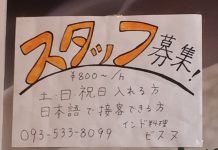 スタッフ募集!
¥800〜/h
土日祝日入れる方
日本語で接客できる方
インド料理
093-533-8099 ビスヌ